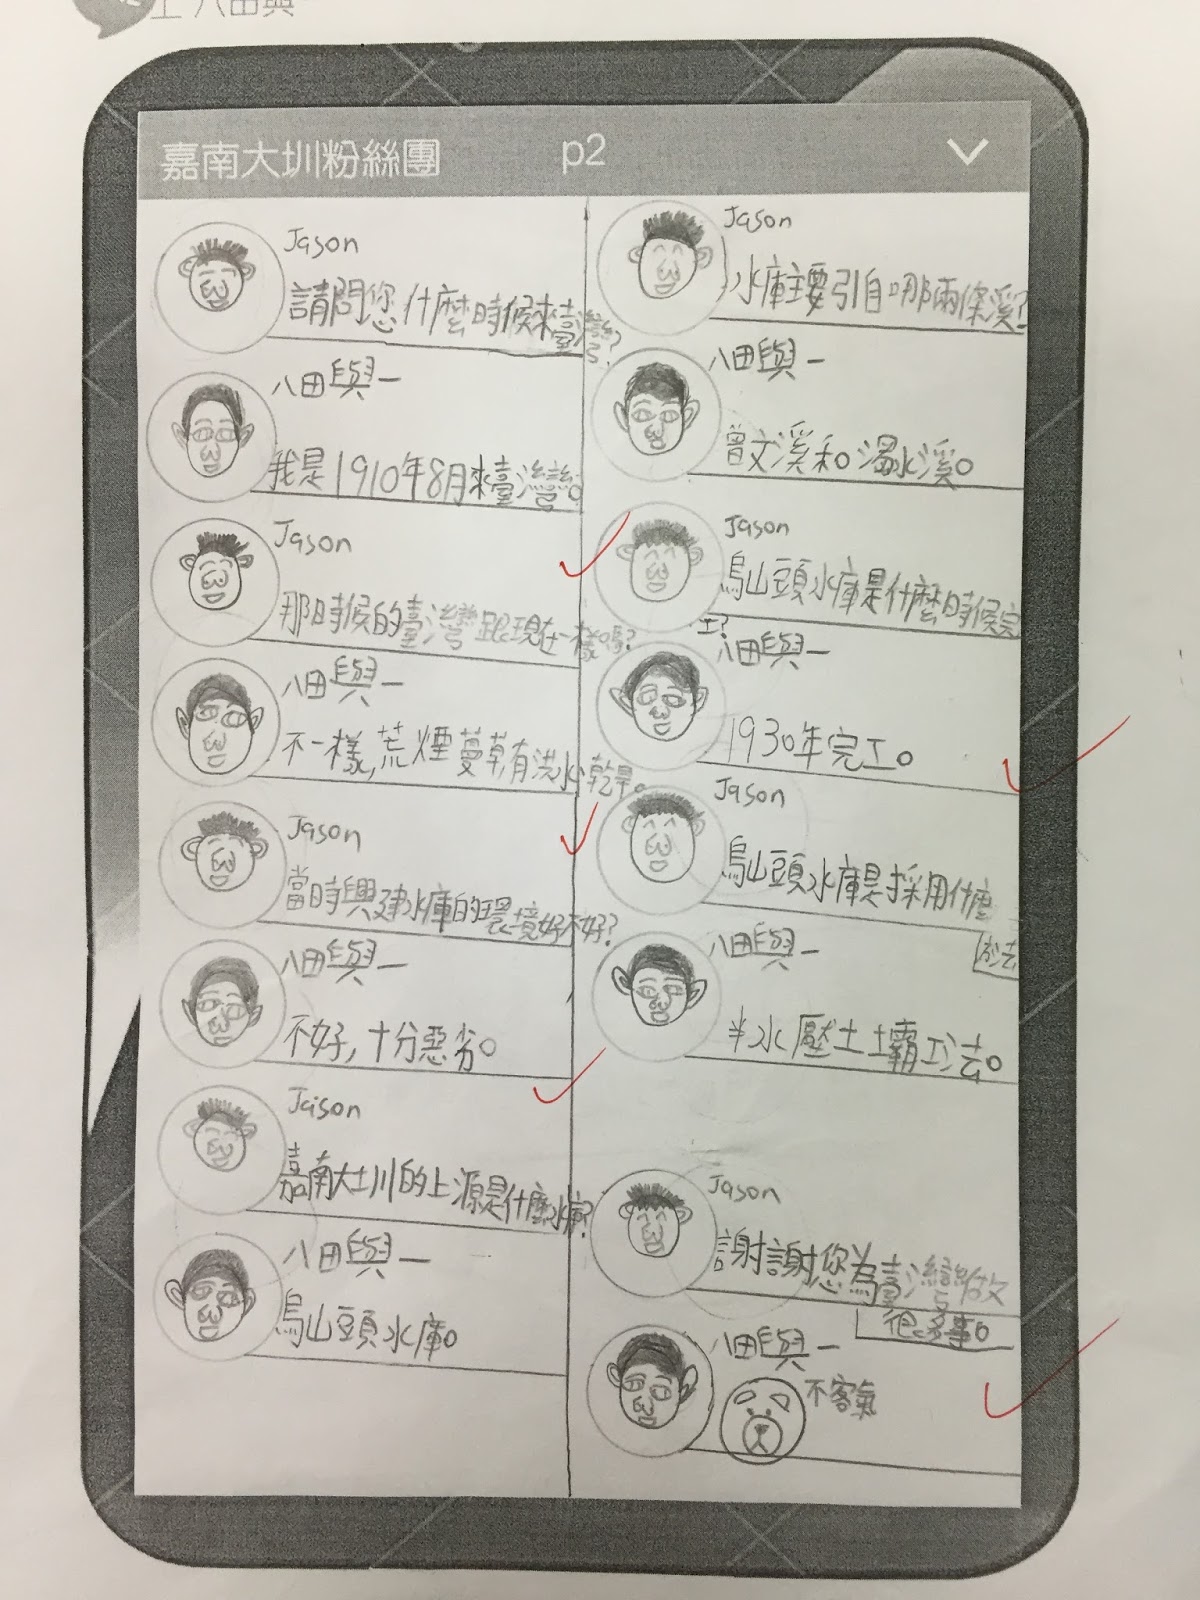 上八田與一
嘉南大圳粉絲團 p2
Jason
請問您什麼時候來臺灣?
八田與一
我是1910年8月來臺灣。
Jason
那時候的臺灣跟現在一樣嗎?
八田與一
不一樣,荒煙蔓草有洪水乾旱。
Jason
當時興建水庫的環境好不好?
八田與一
不好,十分惡劣。
Jaison
嘉南大圳的上源是什麼水庫?
八田與一
烏山頭水庫。
Jason
水庫主要引自哪兩條溪?
八田與一
曾文溪和濁水溪。
Jason
烏山頭水庫是什麼時候完
工?
八田與一
1930年完工。
Jason
烏山頭水庫是採用什麼
八田與一
半水壓土壩工法。
Jason
謝謝您為臺灣做
很多事。
八田與一
不客氣